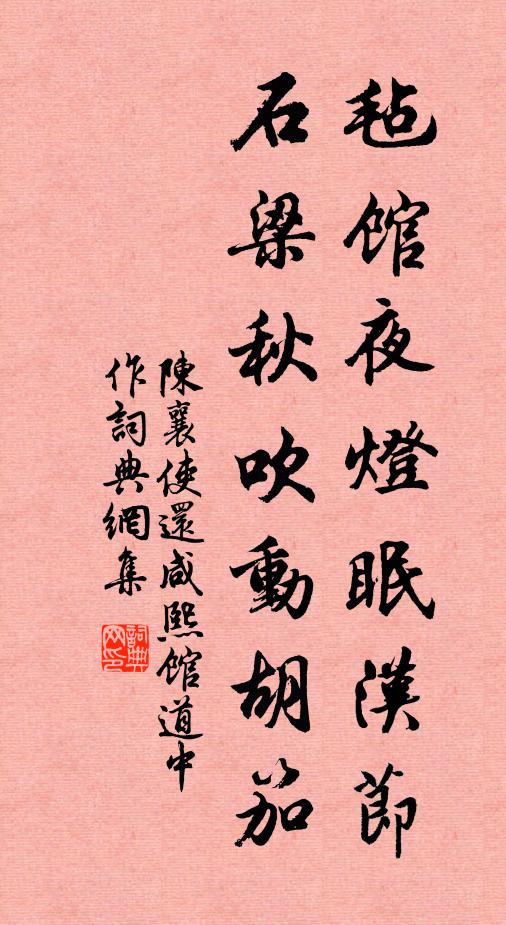 毡館夜燈眠漢節
石梁秋吹動胡笳
陳襄使還咸熙館道中
作詞典網集
詞典网印